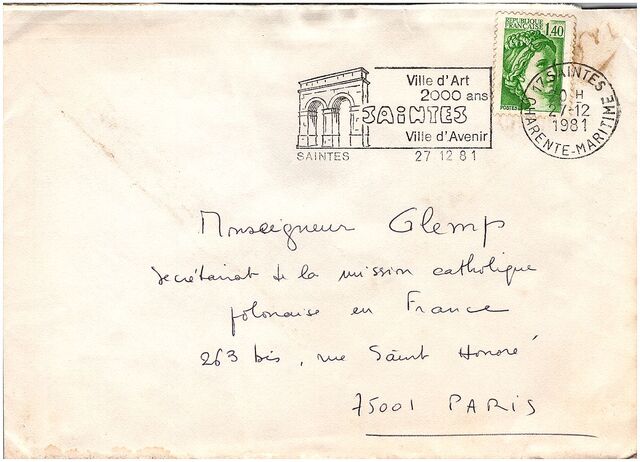 RÉPUBLIQUE
FRANÇAISE
1,40
POSTES
Ville d'Art
2000 ans
SAiNTES
Ville d'Avenir
SAINTES
27 12 81
17 SAINTES
H
27-12
1981
CHARENTE-MARITIME
Monseigneur Glemp
Secrétariat de la mission catholique
polonaise en France
263 bis, rue Saint Honoré
75001 PARIS